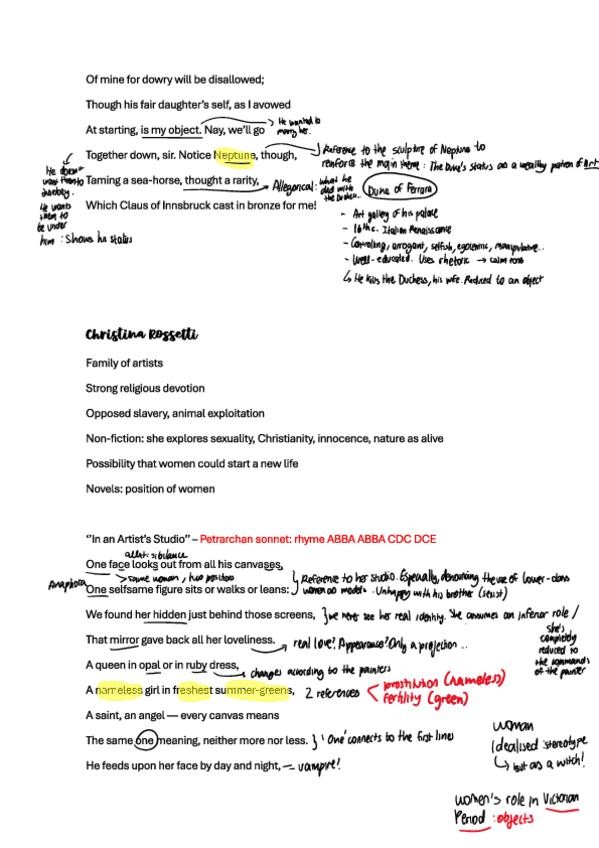 Of mine for dowry will be disallowed;
Though his fair daughter's self, as I avowed
At starting, is my object. Nay, we'll go
He wanted to
marry her.
Together down, sir. Notice Neptune, though,
Reference to the sculpture of Neptune to
reinforce the main theme: The Duke's status as a wealthy patron of Art
Taming a sea-horse, thought a rarity,
Allegorical: what he
did with
the Duchess.
Duke of Ferrara
Which Claus of Innsbruck cast in bronze for me!
He doesn't
want them to
disobey.
He wants
them to
be under
him: Shows his status
- Art gallery of his palace
- 16th c. Italian Renaissance
- Controlling, arrogant, selfish, egocentric, manipulative..
- Well-educated. Uses rhetoric → calm tone
↳ He kills the Duchess, his wife. Reduced to an object
Christina Rossetti
Family of artists
Strong religious devotion
Opposed slavery, animal exploitation
Non-fiction: she explores sexuality, Christianity, innocence, nature as alive
Possibility that women could start a new life
Novels: position of women
"In an Artist's Studio" – Petrarchan sonnet: rhyme ABBA ABBA CDC DCE
sibilance
One face looks out from all his canvases,
> same woman, two positions
Anaphora
One selfsame figure sits or walks or leans:
Reference to her studio. Especially, denouncing the use of lower-class
women as models. Unhappy with his brother (sexist)
We found her hidden just behind those screens,
we never see her real identity. She assumes an inferior role /
she's
completely
reduced to
the commands
of the painter
That mirror gave back all her loveliness.
real love? Appearance? Only a projection..
A queen in opal or in ruby dress,
changes according to the painters
A nameless girl in freshest summer-greens,
2 references
prostitution (nameless)
fertility (green)
A saint, an angel — every canvas means
The same one meaning, neither more nor less.
'One' connects to the first lines
He feeds upon her face by day and night,
– vampire!
woman
Idealised stereotype
↳ but as a witch!
women's role in Victorian
Period: objects